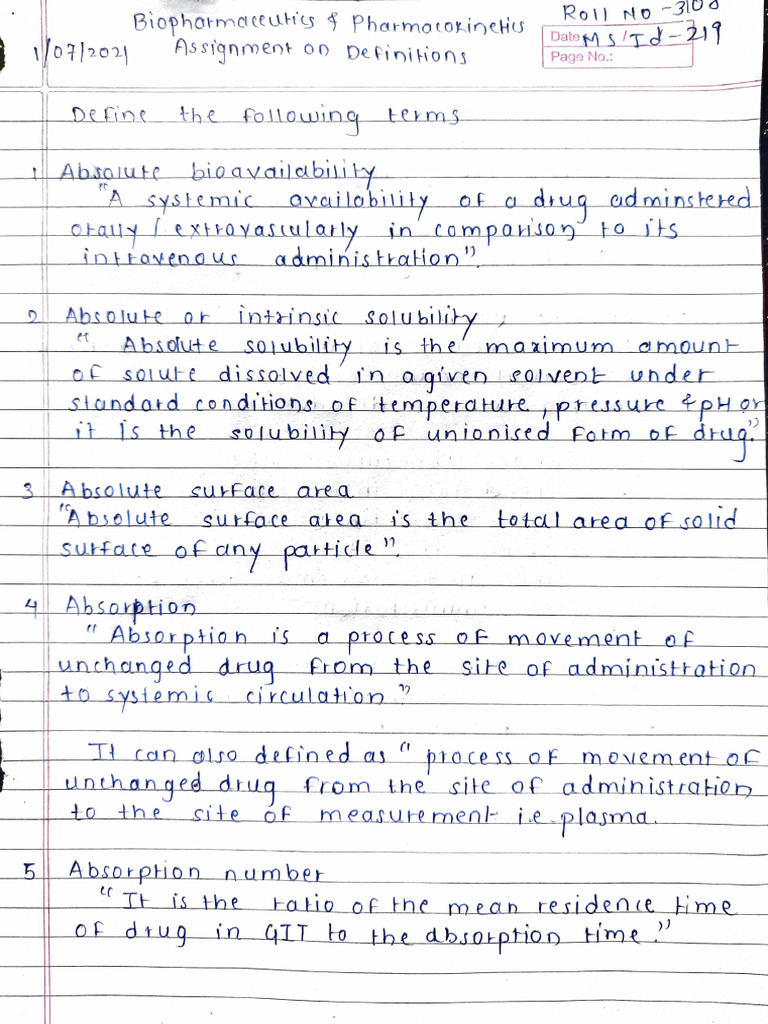 Biopharmaceutics & Pharmacokinetics
Roll No -3108
1/07/2021 Assignment on Definitions
Date MS/Id-219
Page No.:
Define the following terms
1 Absolute bioavailability
"A systemic availability of a drug adminstered
orally / extravascularly in comparison to its
intravenous administration".
2 Absolute or intrinsic solubility,
" Absolute solubility is the maximum amount
of solute dissolved in a given solvent under
standard conditions of temperature, pressure & pH or
it is the solubility of unionised form of drug."
3 Absolute surface area
"Absolute surface area is the total area of solid
surface of any particle".
4 Absorption
" Absorption is a process of movement of
unchanged drug from the site of administration
to systemic circulation"
It can also defined as " process of movement of
unchanged drug from the site of administration
to the site of measurement i.e. plasma.
5 Absorption number
"It is the ratio of the mean residence time
of drug in GIT to the absorption time."